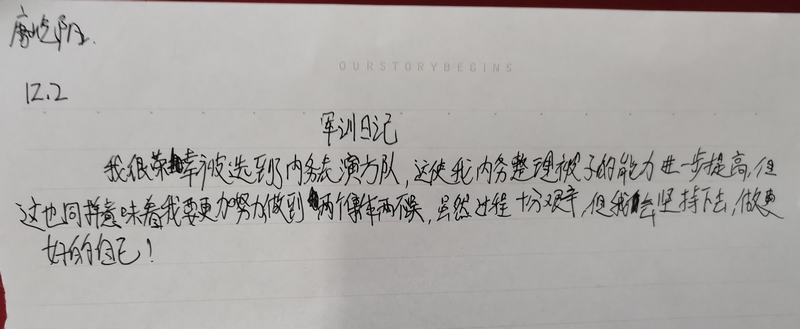 OURSTORYBEGINS
12.2
军训日记
我很荣幸被选到了内务表演方队,这使我内务整理被子的能力进一步提高,但
这也同样意味着我要更加努力做到两个事两不误,虽然过程十分艰辛,但我会坚持下去,做更
好的自己!